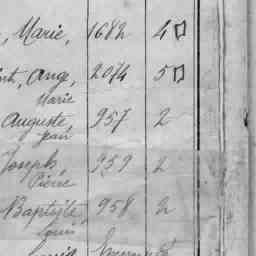 , Marie, 1682 4
Ange, 2074 5
Marie
Auguste, 957 2
Jean
Joseph, 959 2
Pierre
Baptiste, 958 2
Louis